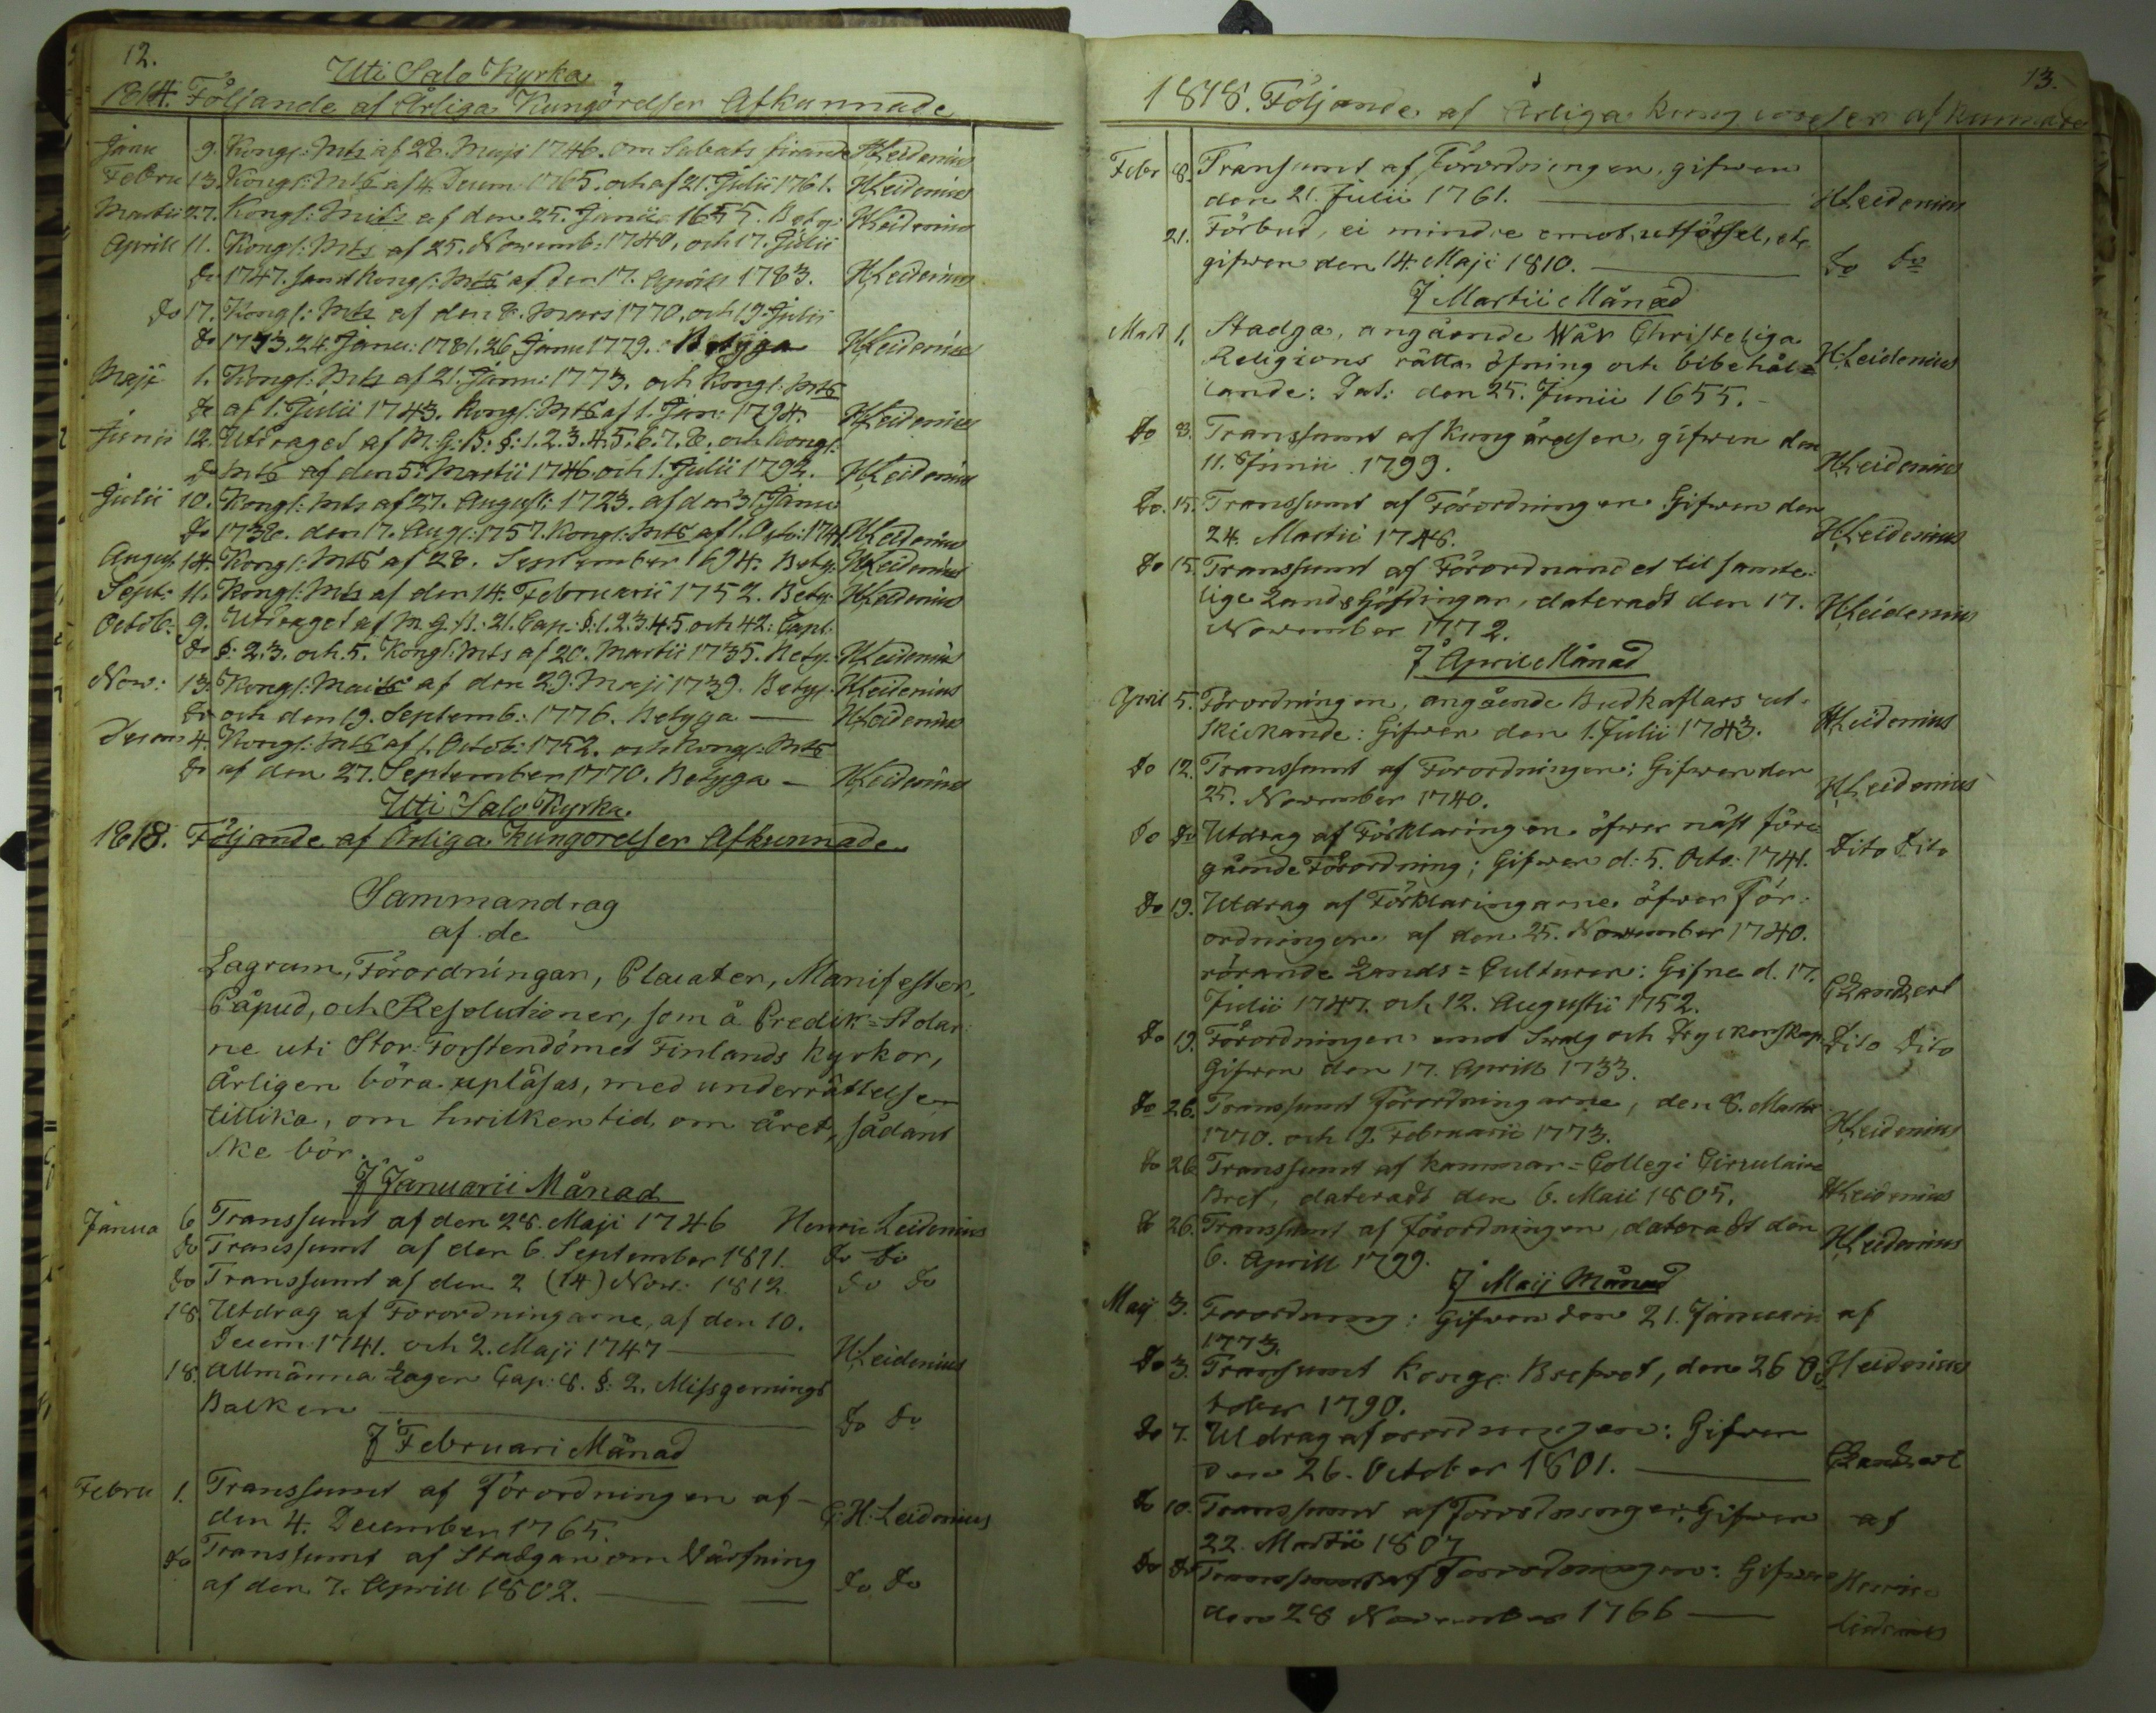 12.
Uti Salo Kyrka
1814. Följande af Årliga Kungörelser Afkunnade
Janu 9. Kongl: Mts af 28. Maji 1746. om Sabats firande HLeidenius
Febru 13. Kongl: Mts af 4. Decem: 1765. och af 21. Julii 1761. HLeidenius
Martii 27. Kongl: Mts af den 25. Junii 1655. Betyg: HLeidenius
Aprill 11. Kongl: Mts af 25. Novemb: 1740, och 17. Julii
Do 1747. samt Kongl: Mts af den 17. Aprill 1783. HLeidenius
Do 17. Kongl: Mts af den 8. Mars 1770, och 19. Julii
Do 1773. 24. Janu: 1781. 26. Janu 1779. Betyga HLeidenius
Maji 1. Kongl: Mts af 21. Janu: 1773. och Kongl: Mts
Do af 1. Julii 1743. Kongl: Mts af 1. Jan: 1794. HLeidenius
Junii 12. Utdraget af M. G: B: §: 1. 2. 3. 4. 5. 6. 7. 8. och Kongl:
Do Mts af den 5. Martii 1746. och 1. Julii 1792. HLeidenius
Julii 10. Kongl: Mts af 27. August: 1723. af den 31 Janu
Do 1738. den 17. Aug: 1757. Kongl: Mts af 1. Octb: HLeidenius
August 14. Kongl: Mts af 28. September 1694. Betyg: HLeidenius
Sept: 11. Kongl: Mts af den 14. Februarii 1752. Betyg: HLeidenius
Octob: 9. Utdraget af M. G. B: 21. Cap: §: 1. 2. 3. 4. 5 och 42: Capt.
Do §: 2. 3. och 5. Kongl: Mts af 20. Martii 1735. Betyg. HLeidenius
Nov: 13. Kongl: Maits af den 29. Maji 1739. Betyg. HLeidenius
Do och den 19. Septemb: 1776. Betyga — HLeidenius
Decem 4. Kongl: Mts af 1. Octob: 1752. och Kongl: Mts
Do af den 27. September 1770. Betyga — HLeidenius
Uti Salo Kyrka.
1818. Följande af Årliga Kungorelser Afkunnade
Sammandrag
af de
Lagrum, Förordningar, Placater, Manifester,
Påpud, och Resolutioner, som å Predik=Stolar:
ne uti Stor: Forstendömet Finlands kyrkor,
Årligen böra upläsas, med underrättelse
tillika, om hwilken tid, om året, sådant
ske bör.
J Januarii Månad
Janua 6 Transsumt af den 28. Maji 1746 Henric Leidenius
Do Transsumt af den 6. September 1811. Do Do
Do Transsumt af den 2 (14) Nov: 1812. Do Do
18. Utdrag af Forordningarne, af den 10.
Decem: 1741. och 2. Maji 1747 — H:Leidenius
18. Allmänna Lagen Cap: 8. §: 2. Missgernings
Balken — Do Do
J Februari Månad
Febru 1. Transsumt af Förordningen af
den 4. December 1765. H: Leidenius
Do Transsumt af Stadgan om Värfning
af den 7. Aprill 1802. — Do Do
13.
1818. Följande af Årliga kungiorelser afkunnade
Febr 8. Transumt af Förordningen, gifwen
den 21. Julii 1761. — HLeidenius
21. Förbud, ei mindre emot utförsel, etc
gifwen den 14. Maji 1810. — Do Do
J Martii Månad
Mart 1. Stadga, angående Wår Christeliga
Religions rätta öfning och bibehål=
lande: Dat: den 25. Junii 1655. — H:Leidenius
Do 8. Transsumt af Kungörelsen, gifwen den
11. Junii 1799. HLeidenius
Do. 15. Transsumt af Förordningen Gifwen den
24. Martii 1746. HLeidenius
Do 15. Transsumt af Förordnandet til samte:
lige Landshöfdingar, dateradt den 17.
November 1772. HLeidenius
J April Månad
April 5. Förordningen, angående Budkaflars ut-
skickande: Gifwen den 1. Julii 1743. HLeidenius
Do 12. Transsumt af Forordningen: Gifwen den
25. November 1740. HLeidenius
Do Do Utdrag af Förklaringen öfwer näst före
gående Förordning; Gifwen d: 5. Octo: 1741. Dito Dito
Do 19. Utdrag af Förklaringarne öfwer För:
ordningen af den 25. November 1740.
rörande Lands=Culturen: Gifne d. 17.
Julii 1747. och 12. Augustii 1752.
Do 19. Förordningen emot Swalg och Dryckenskap:
Gifwen den 17. Aprill 1733. Dito Dito
Do 26. Transsumt Förordningarne, den 8. Martii
1770. och 9. Februarii 1773. HLeidenius
Do 26 Transsumt af Kammar=Collegi Circulaire
Bref, dateradt den 6. Maii 1805. HLeidenius
Do 26. Transsumt af förordningen, dateradt den
6. Aprill 1799. HLeidenius
J Maij Månad
Maij 3. Forordning: Gifwen den 21. Januari af
1773.
Do 3. Transumt Kongl: Brefwet, den 26 Oc HLeidenius
tober 1790.
Do 7. Utdrag af orordningen: Gifwen
Den 26. October 1801. —
Do 10. Transsumt af Forordningen; Gifwen af
22. Martii 1807
Do Do Transsumt af Forordningen: Gifwen Henric
den 28 November 1766 — Leidenius